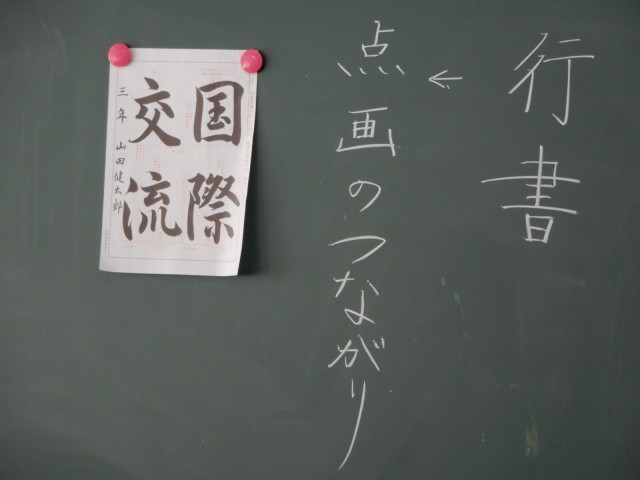 行書
←
点画のつながり
国際
交流
三年 山田健太郎